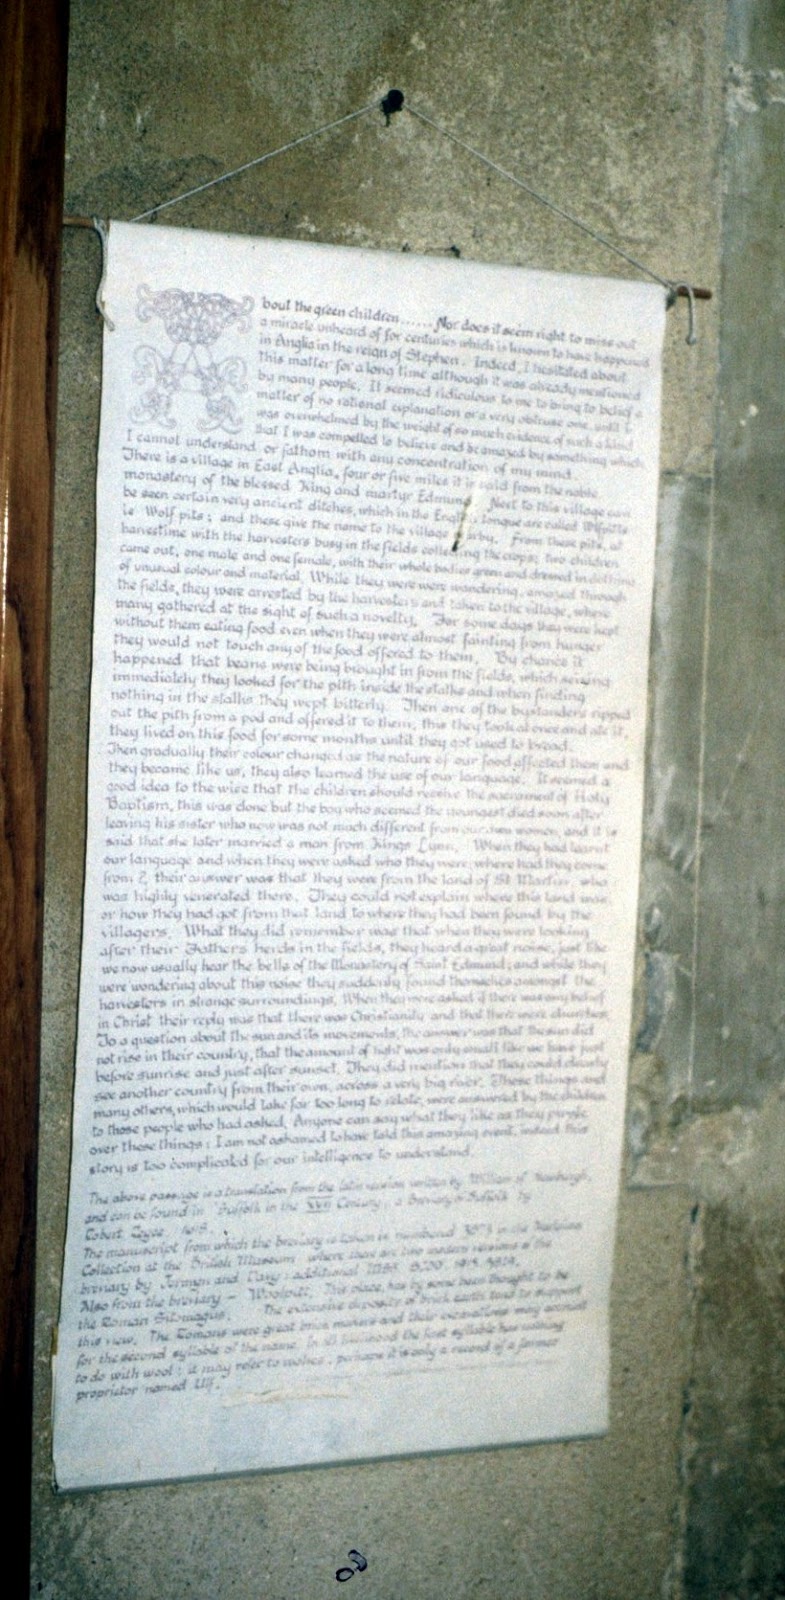 About the green children ...... Nor does it seem right to miss out
a miracle unheard of for centuries which is known to have happened
in Anglia in the reign of Stephen. Indeed, I hesitated about
this matter for a long time although it was already mentioned
by many people. It seemed ridiculous to me to bring to belief a
matter of no rational explanation or a very obtruse one, until I
was overwhelmed by the weight of so much evidence of such a kind
that I was compelled to believe and be amazed by something which
I cannot understand or fathom with any concentration of my mind.
There is a village in East Anglia, four or five miles it is said from the noble
monastery of the blessed King and martyr Edmund. Next to this village can
be seen certain very ancient ditches, which in the English tongue are called
ie Wolf pits; and these give the name to the village nearby. From these pits, at
harvestime with the harvesters busy in the fields collecting the crops; two children
came out, one male and one female, with their whole bodies green and dressed in clothing
of unusual colour and material. While they were were wandering, amazed through
the fields, they were arrested by the harvesters and taken to the village, where
many gathered at the sight of such a novelty. For some days they were kept
without them eating food even when they were almost fainting from hunger
they would not touch any of the food offered to them. By chance it
happened that beans were being brought in from the fields, which seizing
immediately they looked for the pith inside the stalks and when finding
nothing in the stalks they wept bitterly. Then one of the bystanders ripped
out the pith from a pod and offered it to them, this they took at once and ate it,
they lived on this food for some months until they got used to bread.
Then gradually their colour changed as the nature of our food affected them and
they became like us, they also learned the use of our language. It seemed a
good idea to the wise that the children should receive the sacrament of Holy
Baptism, this was done but the boy who seemed the youngest died soon after
leaving his sister who now was not much different from our own women, and it is
said that she later married a man from Kings Lynn. When they had learnt
our language and when they were asked who they were, where had they come
from?, their answer was that they were from the land of St Martin, who
was highly venerated there. They could not explain where this land was
or how they had got from that land to where they had been found by the
villagers. What they did remember was that when they were looking
after their Fathers herds in the fields, they heard a great noise, just like
we now usually hear the bells of the Monastery of Saint Edmund; and while they
were wondering about this noise they suddenly found themselves amongst the
harvesters in strange surroundings. When they were asked if there was any belief
in Christ their reply was that there was Christianity and that there were churches.
To a question about the sun and its movements, the answer was that the sun did
not rise in their country, that the amount of light was only small like we have just
before sunrise and just after sunset. They did mention that they could clearly
see another country from their own, across a very big river. These things and
many others, which would take far too long to relate, were answered by the children
to those people who had asked. Anyone can say what they like as they
over these things; I am not ashamed to have told this amazing event, indeed this
story is too complicated for our intelligence to understand.
The above passage is a translation from the latin version written by William of Newburgh,
and can be found in 'Suffolk in the XVII Century, a Breviary of Suffolk by
Robert Reyce, 1618.
The manuscript from which the breviary is taken is numbered 3873 in the Harleian
Collection at the British Museum, where there are two modern versions of the
breviary by Jermyn and Davy: additional MSS.
Also from the breviary – Woolpitt. This place, has by some been thought to be
the Roman Sitomagus. The extensive deposits of brick earth tend to support
this view. The Romans were great brick makers and their excavations may account
for the second syllable of the name. In all likelihood the first syllable has nothing
to do with wool: it may refer to wolves, perhaps it is only a record of a former
proprietor named Ulf.